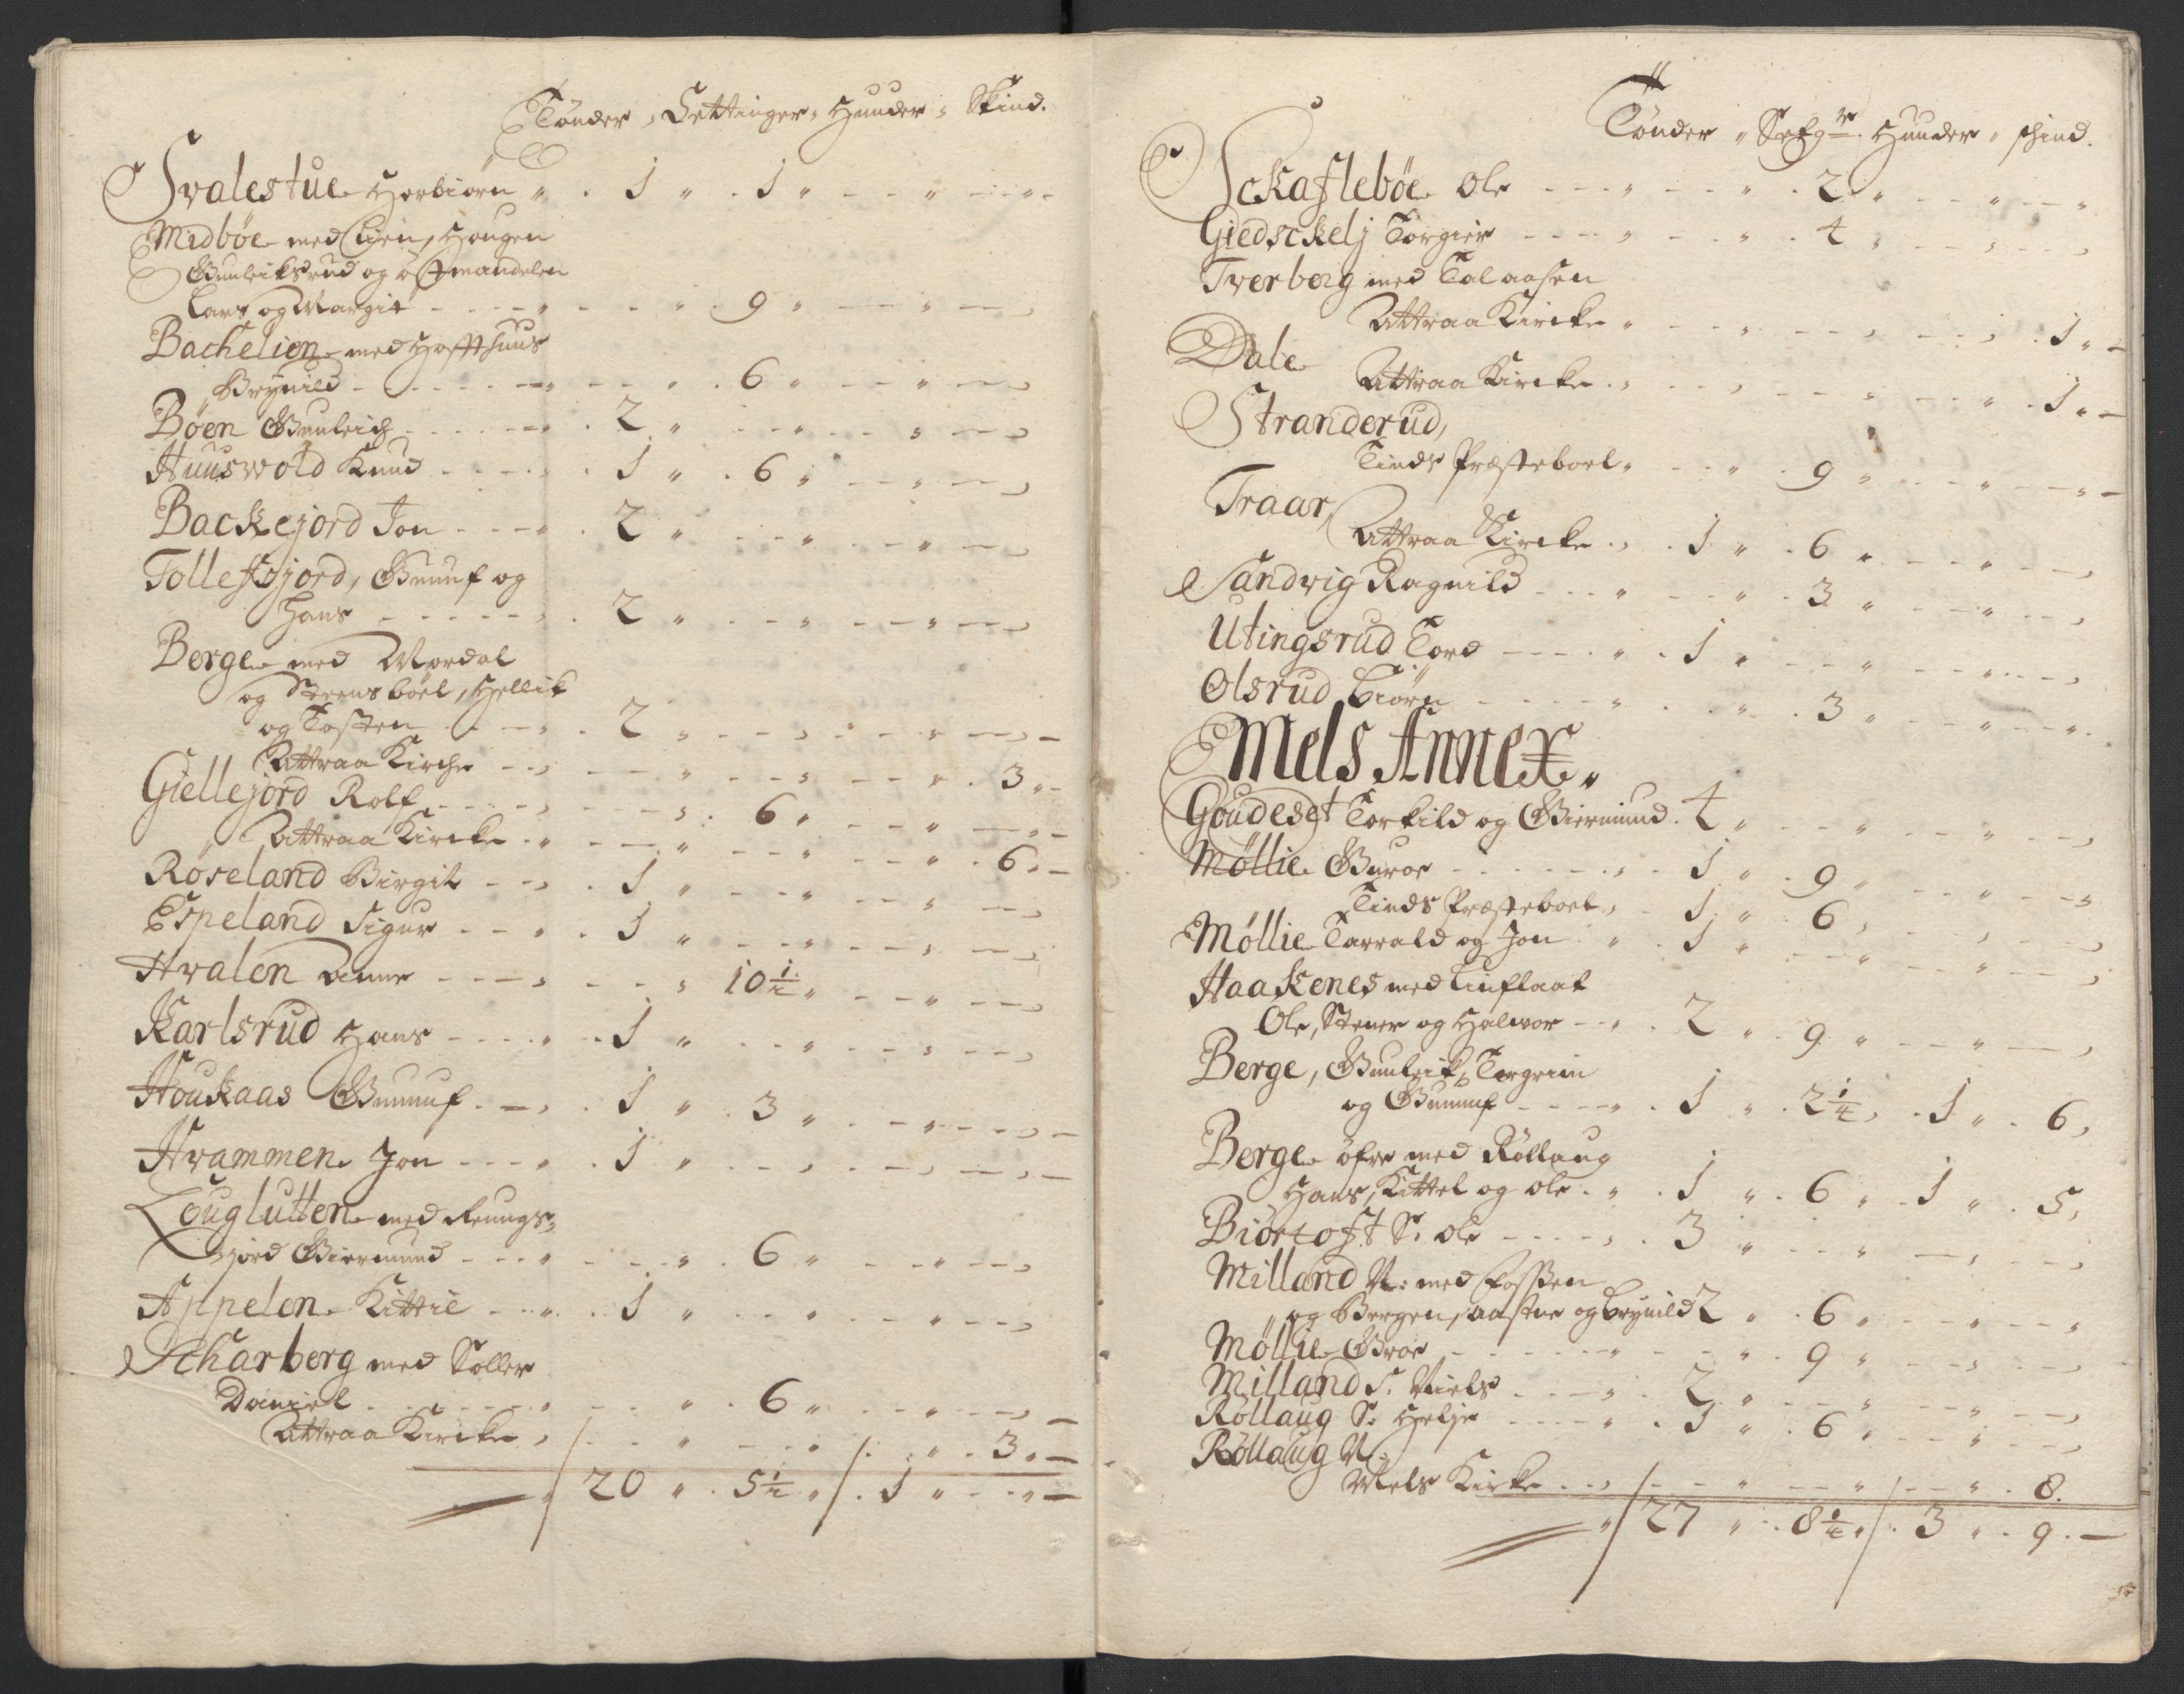 Tønder „ Settinger „ Huuder „ Skind.
Svalestue Herbiørn „ . 1 „ . 1 „ - - „ - - „ -
Midbøe med Lien, Hougen
Gunleiksrud og Østmandelen
Lars og Margit - - - „ - - „ . 9 „ - - „ - -
Bachelien med Hofft huus
Brynild - - - - - „ - - „ . 6 „ - - „ - -
Bøen Gunleich - - - - „ . 2 „ - - „ - - „ - -
Huuswold Knud - - - - „ . 1 „ . 6 „ - - „ - -
Backejord Jon - - - „ . 2 „ - - „ - - „ - -
Tollefsjord, Gunuf og
Hans - - - - - „ . 2 „ - - „ - - „ - -
Berge med Mordal
og Steensböel, Hellik
og Tosten - - - „ . 2 „ - - „ - - „ - - „ -
Attraa Kirche - - „ - - „ - - „ - - „ . 3 „ -
Giellejord Rolf - - - - „ - - „ . 6 „ - - „ - - „ -
Attraa Kircke . „ - - „ - - „ - - „ . 6 „ -
Røseland Birgit - - „ . 1 „ - - „ - - „ - -
Espeland Sigur - - „ . 1 „ - - „ - - „ - -
Hvalen Anne - - - „ - - „ 10 1/4 „ - - „ - -
Karlsrud Hans - - - „ . 1 „ - - „ - - „ - -
Houkaas Gunnuf - - „ . 1 „ . 3 „ - - „ - - „ -
Hvammen Jon - - - „ . 1 „ - - „ - - „ - - „ -
Louglutten med Rungs-
jord Giermund - - - „ - - „ . 6 „ - - „ - -
Appelen Kittil - - „ . 1 „ - - „ - - „ - -
Scharberg med Søller
Daniel - - - - - „ - - „ . 6 „ - - „ - - „ -
Attraa Kircke „ - - „ - - „ - - „ . 3 „ -
„ 20 „ . 5 1/4 „ . 1 „ - - „ -
Tønder „ Setgr. Huuder „ schind.
Sckaflebøe Ole - - - „ - - „ . 2 „ - - „ - - „
Giedsckelj Torgier - - - „ - - „ . 4 „ - - „ - -
Tverberg med Talaasen
Attraa Kircke „ - - „ - - „ - - „ . 1 „ -
Dale
Attraa Kircke . „ - - „ - - „ - - „ . 1 „ -
Stranderud,
Tinds Præsteboel „ - - „ . 9 „ - - „ - - „ -
Traar,
Attraa Kircke . „ . 1 „ . 6 „ - - „ - -
Sandvig Ragnild - - - „ - - „ . 3 „ - - „ - -
Utingsrud Tord - - - „ . 1 „ - - „ - - „ - -
Olsrud Biørn - - - - „ - - „ . 3 „ - - „ - - „
Mels Annex.
Goudeset Torkild og Giermund . 4 „ - - „ - - „ - -
Møllie Guroe - - - - - „ . 1 „ . 9 „ - - „ - - „
Tinds Præsteboel „ . 1 „ . 6 „ - - „ - -
Møllie Tarrald og Jon „ . 1 „ - - „ - - „ - -
Haakenes med Linflaat
Ole, Stener og Halvor - - „ . 2 „ . 9 „ - - „ - -
Berge, Gunleik, Torgrim
og Gunnuf - - - „ . 1 „ . 2 1/4 „ . 1 „ . 6 „
Berge øfre med Röllaug
Hans, Kittel og Ole . „ . 1 „ . 6 „ . 1 „ . 5 „
Biørtoft S. Ole - - - „ . 3 „ - - „ - - „ - -
Milland N: med Fossen
og Bergen, Aasne og Brynild 2 „ . 6 „ - - „ - - „
Møllie Groe - - - - - „ - - „ . 9 „ - - „ - -
Milland S. Niels - - - „ . 2 „ - - „ - - „ - -
Röllaug S. Helje - - - „ . 1 „ . 6 „ - - „ - -
Röllaug N.
Mels Kirke - - „ - - „ - - „ - - „ . 8.
„ 27 „ . 8 1/4 „ . 3 „ . 9 . -